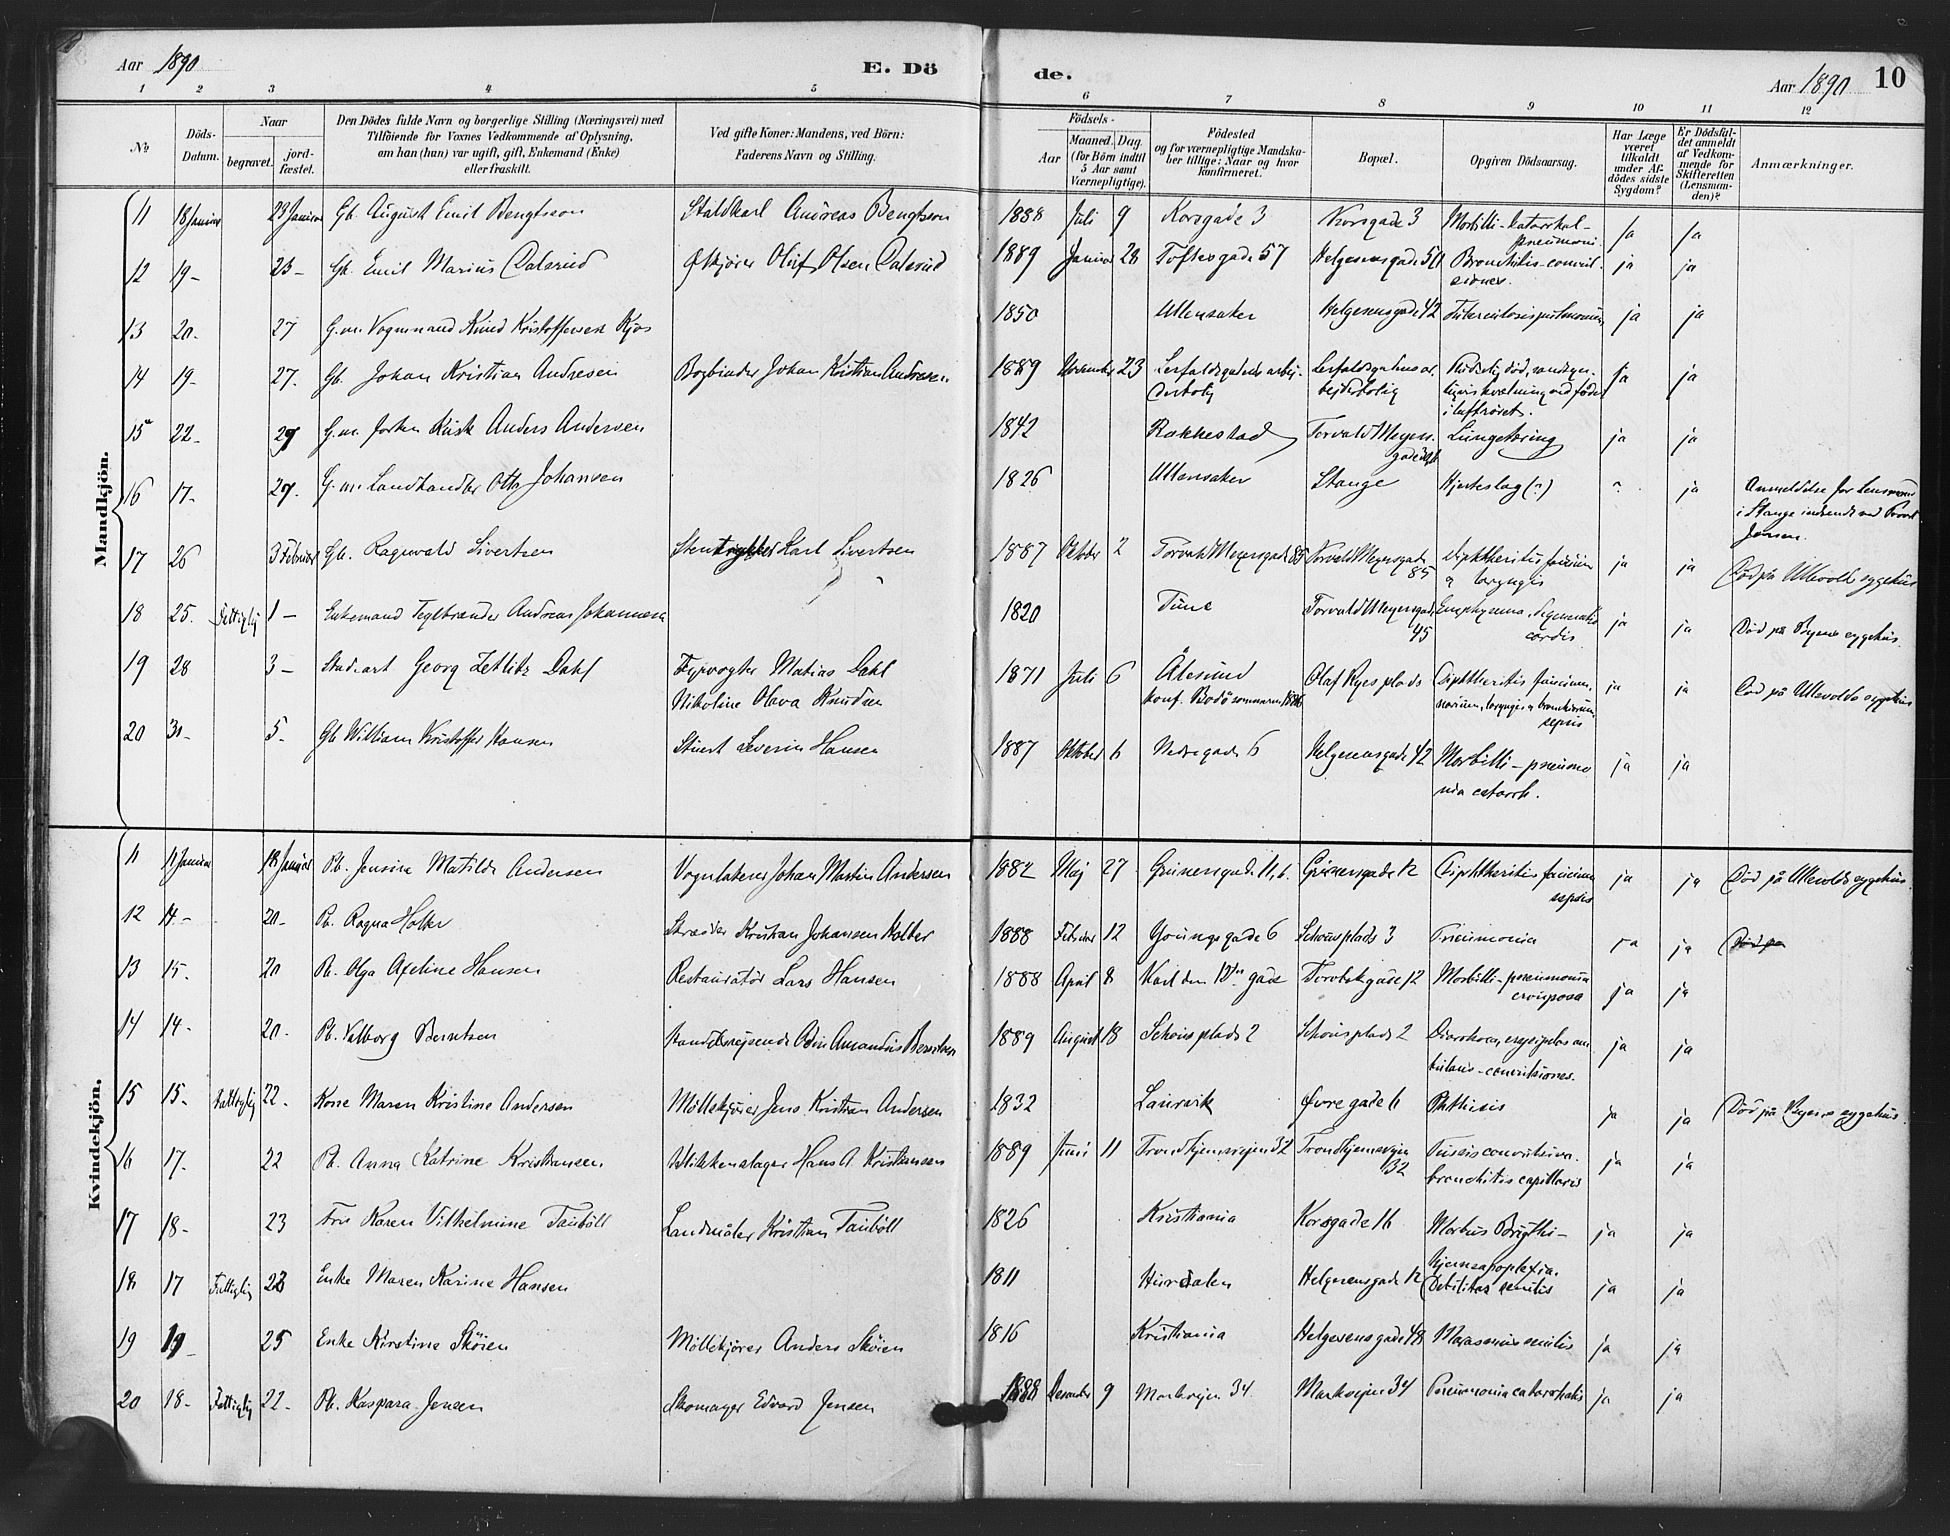 Aar 1890
E. Dö
de.
Aar 1890
10
1 2 3 4 5 6 7 8 9 10 11 12
No
Döds-Datum.
Naar
begravet.
jord-fæstet.
Den Dödes fulde Navn og borgerlige Stilling (Næringsvei) med
Tilföiende for Voxnes Vedkommende af Oplysning,
om han (hun) var ugift, gift, Enkemand (Enke)
eller fraskilt.
Ved gifte Koner: Mandens, ved Börn:
Faderens Navn og Stilling.
Födsels-
Aar
Maaned. Dag.
(for Börn indtil
5 Aar samt
Værnepligtige).
Födested
og for værnepligtige Mandska-
ber tillige: Naar og hvor
konfirmeret.
Bopæl.
Opgiven Dödsaarsag.
Har Læge
været
tilkaldt
under Af-
dödes sidste
Sygdom?
Er Dödsfal-
det anmeldt
af Vedkom-
mende for
Skifteretten
(Lensman-
den)?
Anmærkninger.
Mandkjön.
11 18 Januar 23 Januar Gb. August Emil Bengtson Staldkarl Andreas Bengtson 1888 Juli 9 Korsgade 3 Korsgade 3 Morbilli-katarrhal-pneumoni ja ja
12 19- 23- Gb. Emil Marius Dalerud Ølkjører Oluf Olsen Dalerud 1889 Januar 28 Toftesgade 57 Helgesensgade 50 Bronchitis-convulsiones. ja ja
13 20- 27 G.m. Vognmand Knud Kristoffersen Kjos 1850 Ullensaker Helgesensgade 42 Tuberculosis pulmonum ja ja
14 19- 27. Gb. Johan Kristian Andresen Bogbinder Johan Kristian Andresen 1889 November 23 Lerfaldsgadens arbej-derbolig Lerfaldsgadens ar-bejderbolig Pludselig død, sandsyn-ligvis kvælning ved føde i luftrøret. ja ja
15 22- 27 G.m. forhen Kusk Anders Andersen 1842 Rakkestad Torvald Meyers-gade Lungetæring ja ja
16 17- 27. G.m. Landhandler Otto Johansen 1826 Ullensaker Stange Hjerteslag (?) ? ja Anmeldelse for Lensmand i Stange indsendt ved Provst Jensen.
17 26 3 Februar Gb. Ragnvald Sivertsen Stentrykker Karl Sivertsen 1887 Oktober 2 Torvald Meyersgade 85 Torvald Meyersgade 85 Diphtheritis faucium & laryngis ja ja Død på Ullevolds sygehus
18 25. Fattiglig 1- Enkemand Teglbrænder Andreas Johannesen 1820 Tune Torvald Meyersgade 45 Emphysema, degeneratio cordis ja ja Død på Byens sygehus.
19 28 3- Stud. art Georg Zetlitz Dahl Fyrvogter Matias Dahl Nikoline Olava Knudsen 1871 Juli 6 Ålesund konf. Bodø sommeren 1886 Olaf Ryes plads Diphtheritis faucium, narium, laryngis & bronchiorum, sepsis ja ja Død på Ullevolds sygehus
20 30- 5- Gb. William Kristoffer Hansen Stuert Severin Hansen 1887 Oktober 6 Nedregade 6 Helgesensgade 42 Morbilli-pneumonia catarrh. ja ja
Kvindekjön.
11 11 Januar 18 Januar Pb. Jensine Matilde Andersen Vognlakerer Johan Martin Andersen 1882 Maj 27 Grünersgade 11, b. Grünersgade 12 Diphtheritis faucium sepsis ja ja Død på Ullevolds sygehus.
12 14- 20- Pb. Ragna Holter Skrædder Kristian Johansen Holter 1888 Februar 12 Youngsgade 6 Schous plads 3 Pneumonia ja ja Død på
13 15- 20 Pb. Olga Axeline Hansen Restauratør Lars Hansen 1888 April 8 Karl den 12tes gade Torvbakgade 12 Morbilli-pneumonia crouposa ja ja
14 14- 20- Pb. Valborg Berntsen Handelsrejsende Odin Amandus Berntsen 1889 August 18 Schous plads 2 Schous plads 2 Diarrhoea, erysipelas am-bulans-convulsiones. ja ja
15 15- Fattiglig 22- Kone Maren Kristine Andersen Møllekjører Jens Kristian Andersen 1832 Laurvik Øvregade 6 Phthisis ja ja Død på Byens sygehus.
16 17- 22 Pb. Anna Katrine Kristiansen Blikkenslager Hans A. Kristiansen 1889 Juni 11 Trondhjemsvejen 32 Trondhjemsvejen 32 Tussis convulsiva. bronchitis capillaris ja ja
17 18- 23 Fru Karen Vilhelmine Taubøll Landmåler Kristian Taubøll 1826 Kristiania Korsgade 16 Morbus Brigthi- Hjerneapoplexia. ja ja
18 17 Fattiglig 23 Enke Maren Karine Hansen 1811 Hurdalen Helgesensgade 12 Debilitas senilis ja ja
19 19 25 Enke Kirstine Skøien Møllekjører Anders Skøien 1816 Kristiania Helgesensgade 48 Marasmus senilis ja ja
20 18- Fattiglig 22- Pb. Kaspara Jensen Skomager Edvard Jensen 1888 December 9 Markvejen 34 Markvejen 34 Pneumonia catarrhalis ja ja